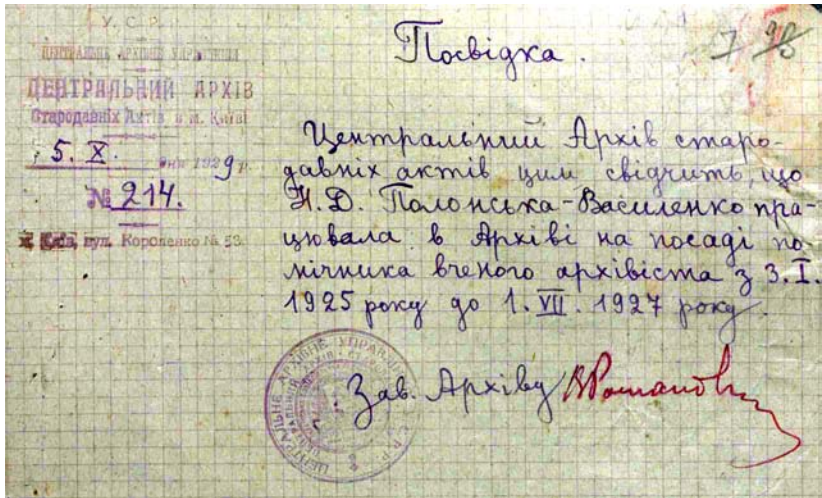 У. С. Р.
ЦЕНТРАЛЬНЕ АРХІВНЕ УПРАВЛІННЯ
ЦЕНТРАЛЬНИЙ АРХІВ
Стародавніх Актів в м. Київі
5. X. 1929 р.
№ 214.
Київ, вул. Короленко № 53
17 98
Посвідка.
Центральний Архів старо-
давніх актів цим свідчить, що
Н. Д. Полонська-Василенко пра-
цювала в Архіві на посаді по-
мічника вченого архівіста з 3. I.
1925 року до 1. VII. 1927 року.
Зав. Архіву ВРоманов
ЦЕНТРАЛЬНЕ АРХІВНЕ УПРАВЛІННЯ
ЦЕНТРАЛЬНИЙ АРХІВ